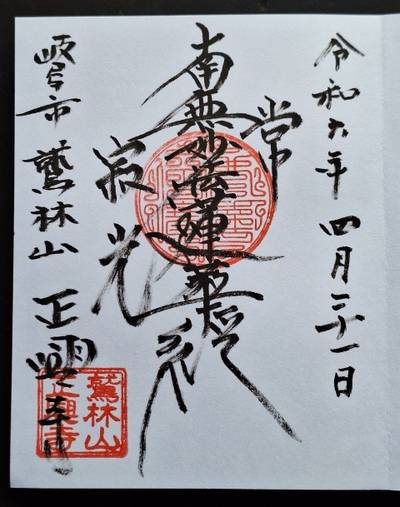 令和六年 四月二十一日
常
南無妙法蓮華経
寂光
岐阜市 鷲林山 正興寺
鷲林山
正興寺